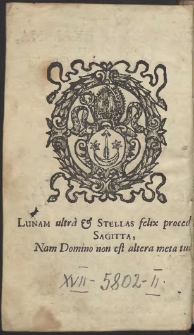 LUNAM ultrà & STELLAS felix proced
SAGITTA,
Nam Domino non est altera meta tuo
XVII-5802-II